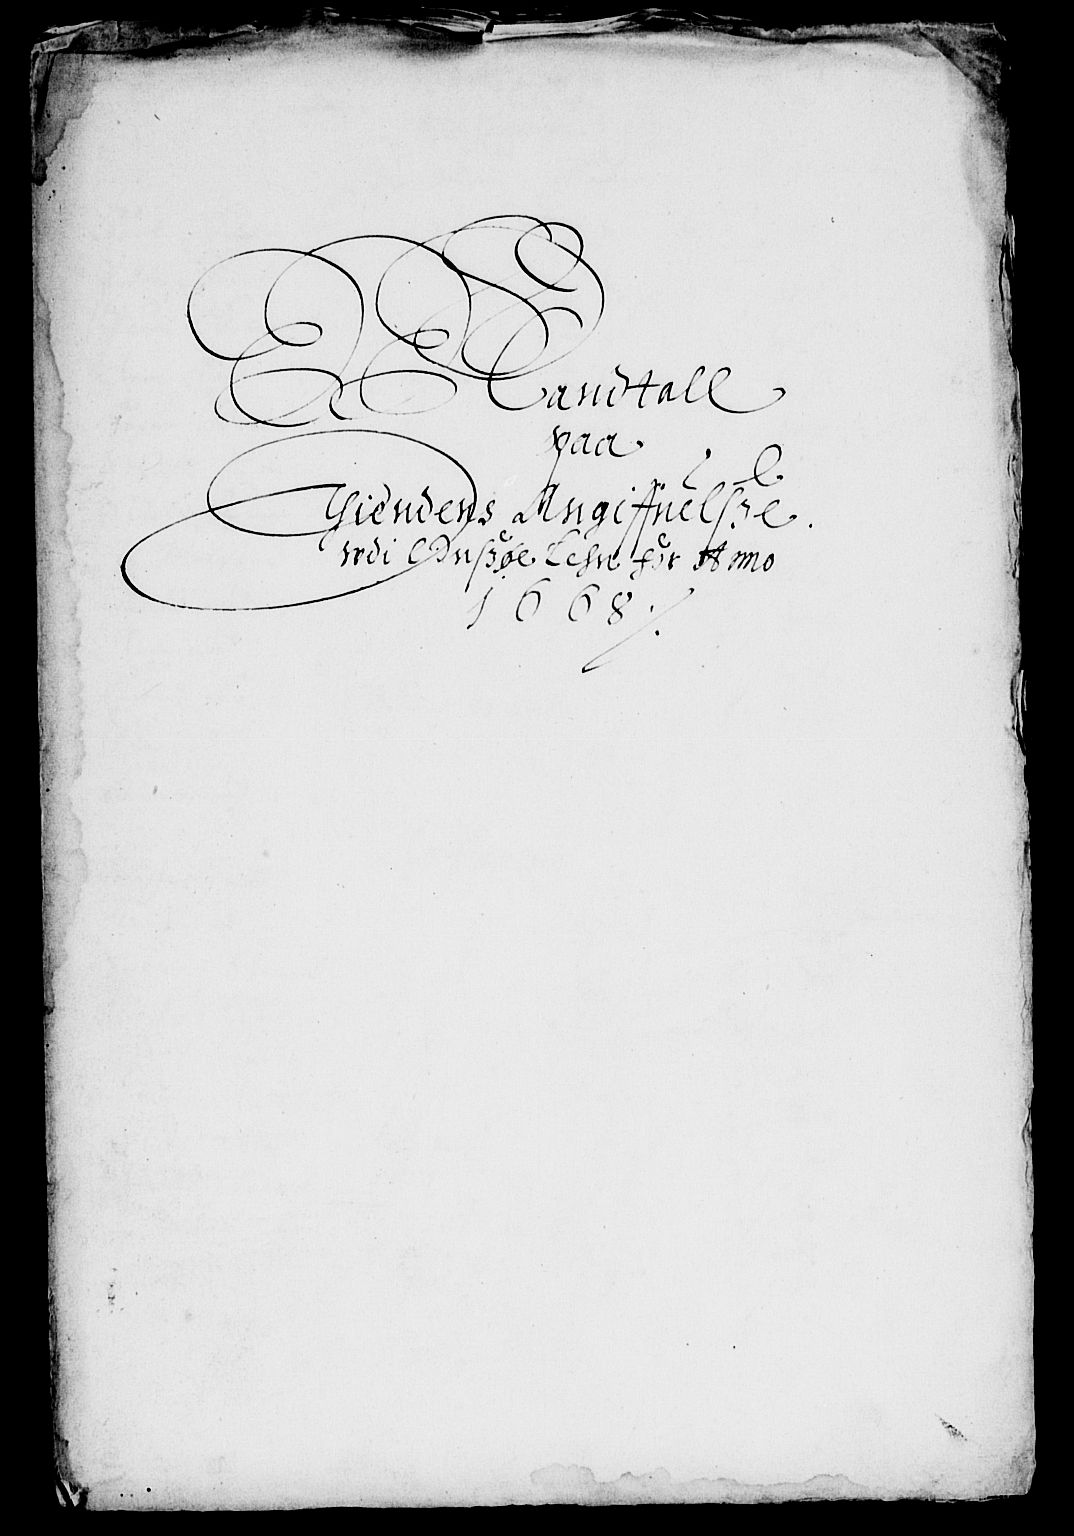 Mandtall
paa
Thiendens Angiffuelsze.
udi Onszøe Lehn for Anno
1668 ./.